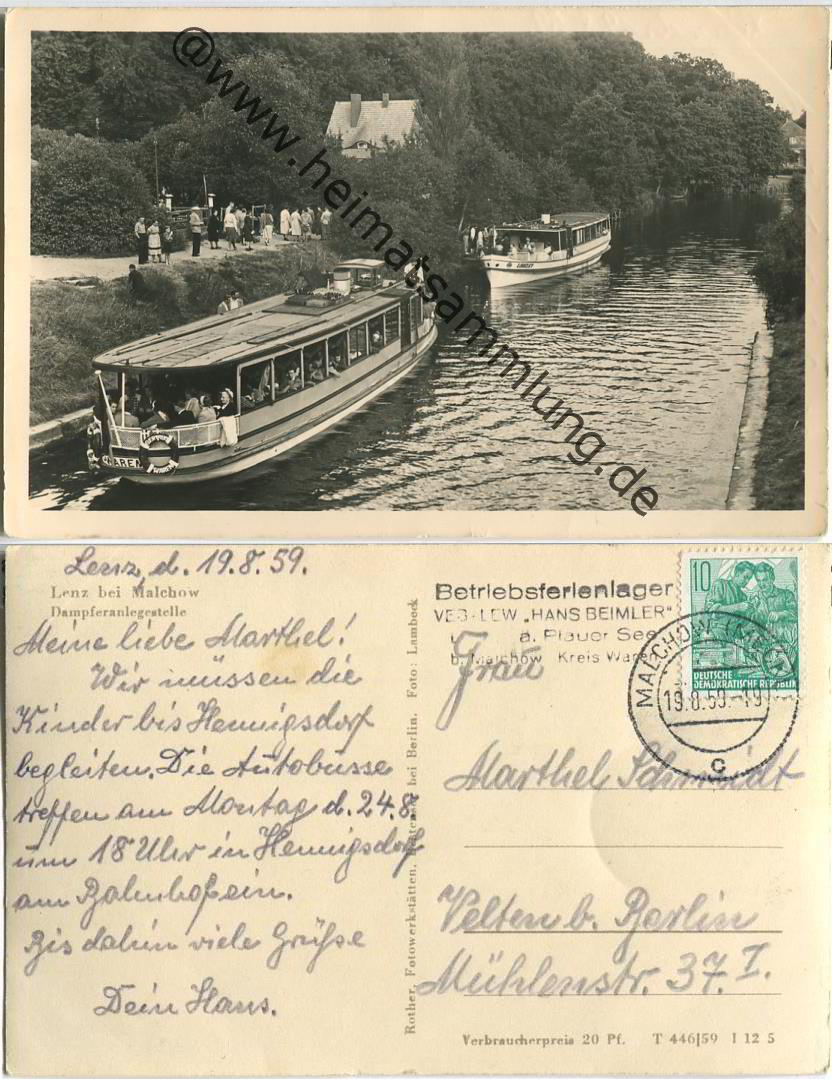 @www.heimatsammlung.de
WAREN
Lenz, d. 19.8.59.
Lenz bei Malchow
Dampferanlegestelle
Meine liebe Marthel!
Wir müssen die
Kinder bis Hennigsdorf
begleiten. Die Autobusse
treffen am Montag d. 24.8.
um 18 Uhr in Hennigsdorf
am Bahnhof ein.
Bis dahin viele Grüße
Dein Hans.
Rother, Fotowerkstätten, bei Berlin. Foto: Lambeck
Betriebsferienlager
VEB-LEW „HANS BEIMLER"
a. Plauer See
b. Malchow Kreis Waren
MALCHOW (MECKL)
19.8.59.-19
c
10
DEUTSCHE
DEMOKRATISCHE REPUBLIK
Frau
Marthel Schmidt
Velten b. Berlin
Mühlenstr. 37. I.
Verbraucherpreis 20 Pf. T 446|59 I 12 5